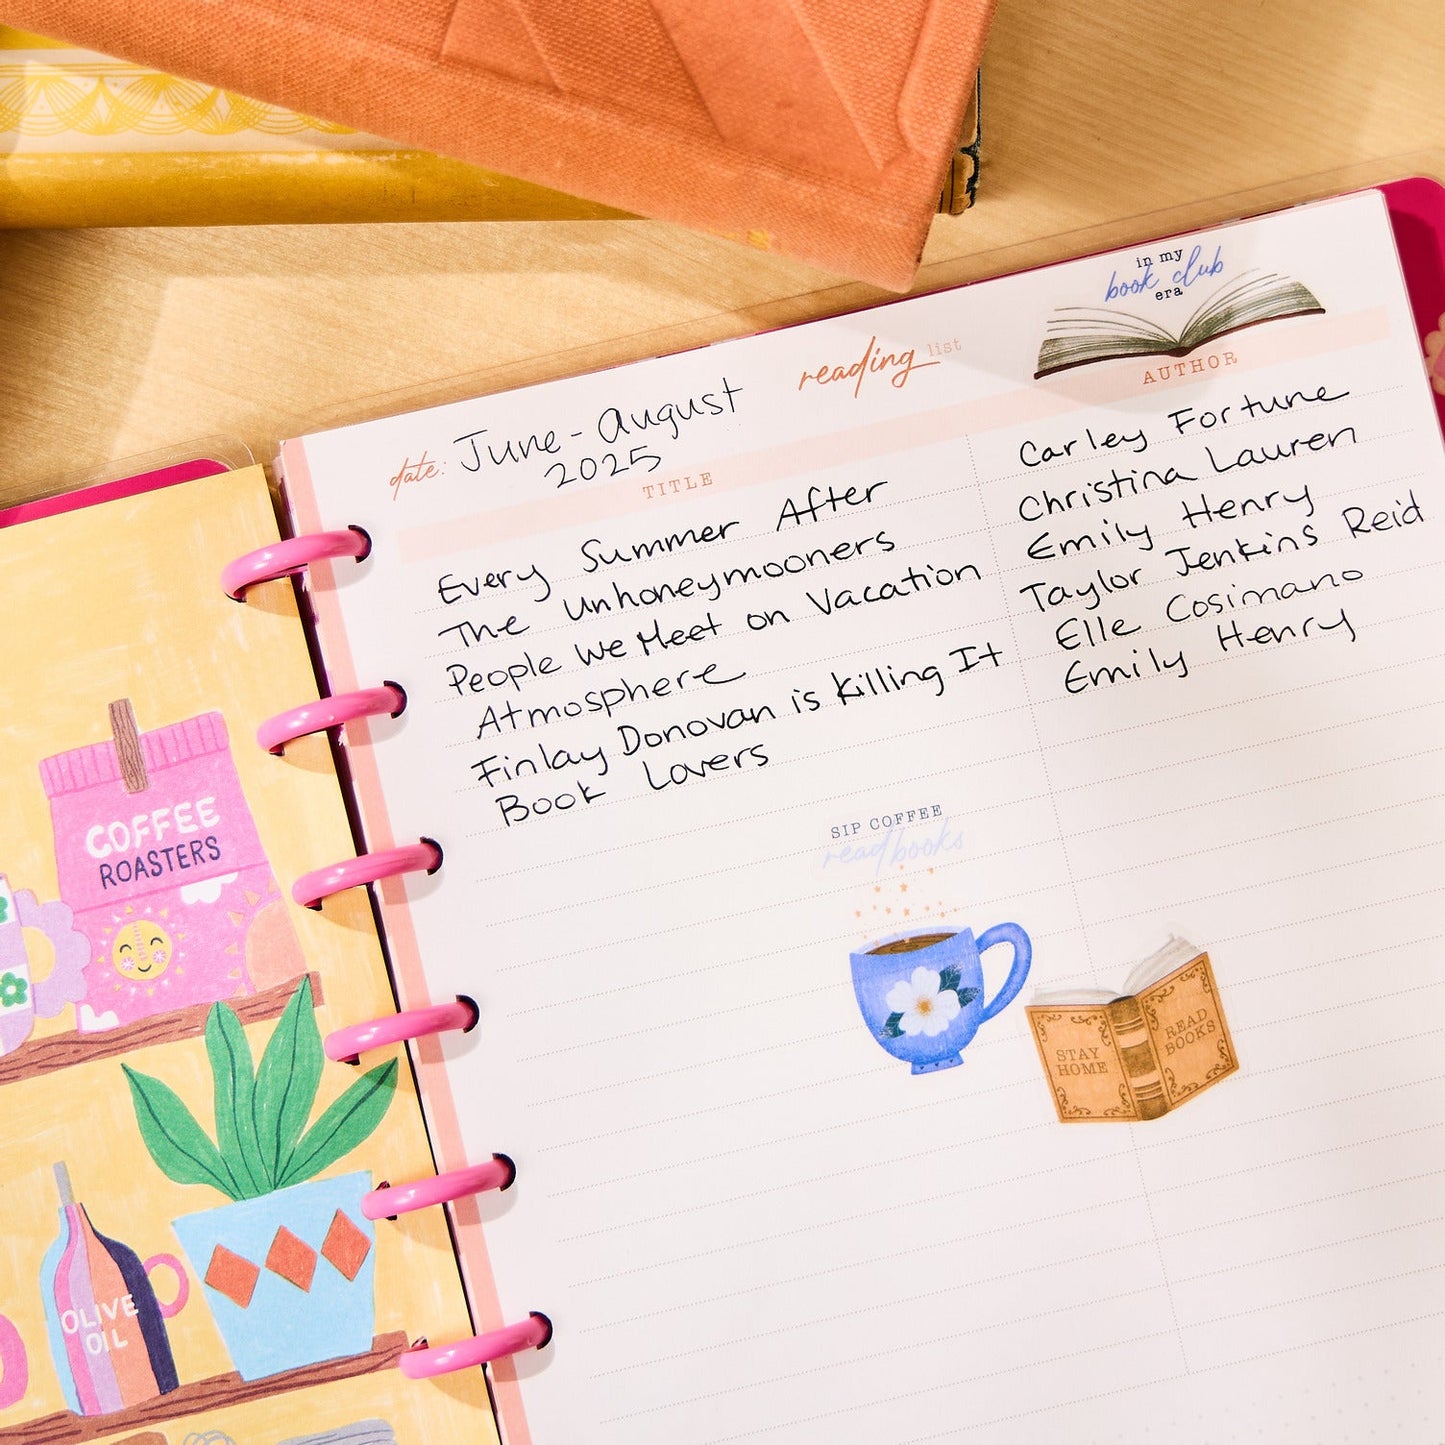 in my
book club
era
reading list
date: June - August
2025
TITLE AUTHOR
Every Summer After Carley Fortune
The Unhoneymooners Christina Lauren
People We Meet on Vacation Emily Henry
Atmosphere Taylor Jenkins Reid
Finlay Donovan is Killing It Elle Cosimano
Book Lovers Emily Henry
SIP COFFEE
read books
STAY
HOME
READ
BOOKS
COFFEE
ROASTERS
OLIVE
OIL